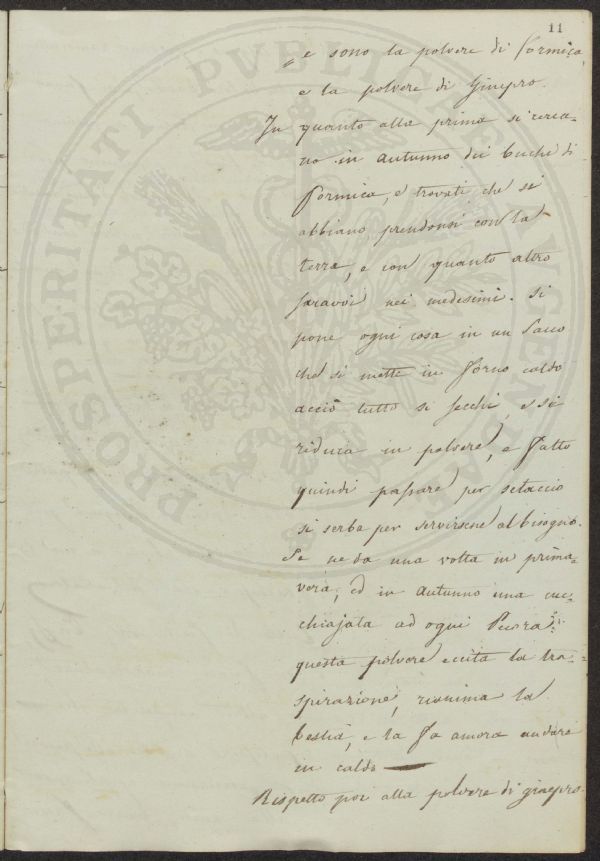 11
e sono la polvere di formica
e la polvere di Ginepro.
In quanto alla prima si cerca-
no in autunno dei buchi di
formica, e trovati che si
abbiano prendonsi con la
terra, e con quanto altro
saravoi nei medesimi. Si
pone ogni cosa in un Sacco
che si mette in forno caldo
acciò tutto si secchi, e si
riduca in polvere, e fatto
quindi passare per setaccio
si serba per servirsene al bisogno.
Se ne da una volta in prima-
vera, ed in autunno una cuc-
chiajata ad ogni Pecora:
questa polvere eccita la tra-
spirazione, rianima la
bestia, e la fa ancora andare
in caldo
Rispetto poi alla polvere di ginepro
PROSPERITATI PVBLICAE AVGENDAE